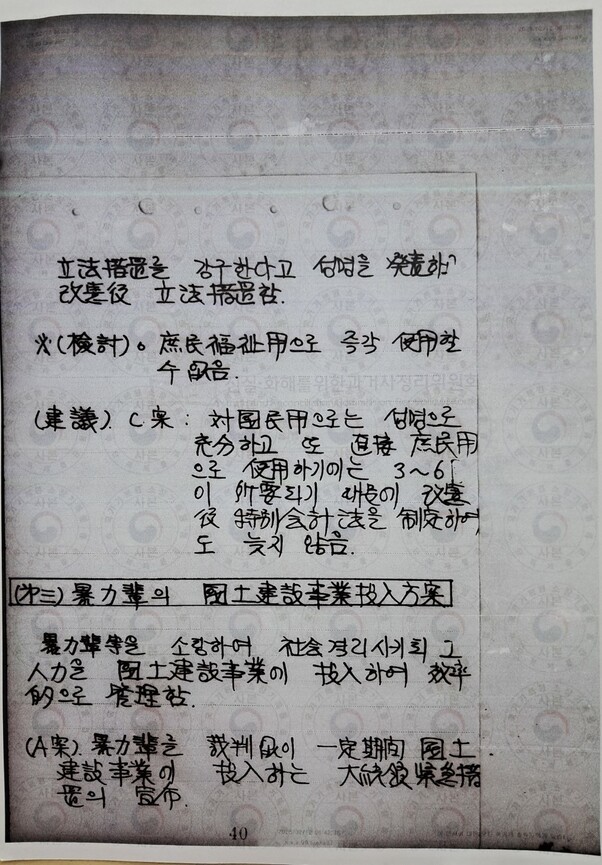 立法措置를 강구한다고 성명을 発表하고
改憲後 立法措置함.
※(檢討)。 庶民福祉用으로 즉각 使用할
수 없음.
진실·화해를위한과거사정리위원회
(建議). C案 : 対國民用으로는 성명으로
充分하고 또 直接 庶民用
으로 使用하기에는 3~6
이 所要되기 때문에 改憲
後 特別会計法을 制定하여
도 늦지 않음.
(第三) 暴力輩의 國土建設事業投入方案
暴力輩等을 소탕하여 社会 격리시키되 그
人力을 國土建設事業에 投入하여 效率
的으로 管理함.
(A案). 暴力輩을 裁判없이 一定期间 國土
建設事業에 投入하는 大統領緊急措
置의 宣布.
40